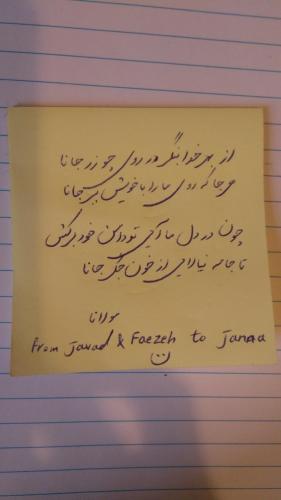 از بهر خدا بنگر در روی چو زر جانا
هر جا که روی ما را با خویش ببر جانا
چون در دل ما آیی تو دامن خود برکش
تا جامه نیالایی از خون جگر جانا
مولانا
from Jawad & Faezeh to Janaa